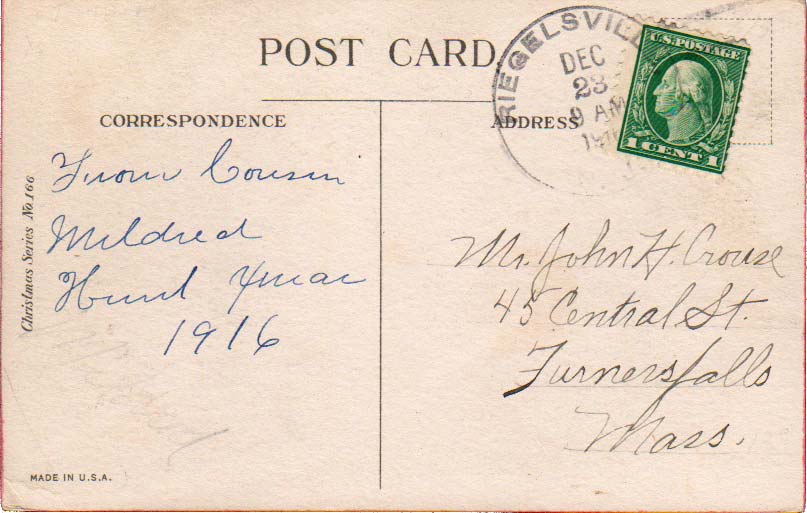 POST CARD
CORRESPONDENCE
ADDRESS
RIEGELSVILL
DEC
23
9 AM
U.S. POSTAGE
1 CENT 1
From Cousin
Mildred
Hunt Xmas
1916
Mr. John H. Crouse
45 Central St.
Turnersfalls
Mass.
Christmas Series No. 166
Mildred
MADE IN U.S.A.